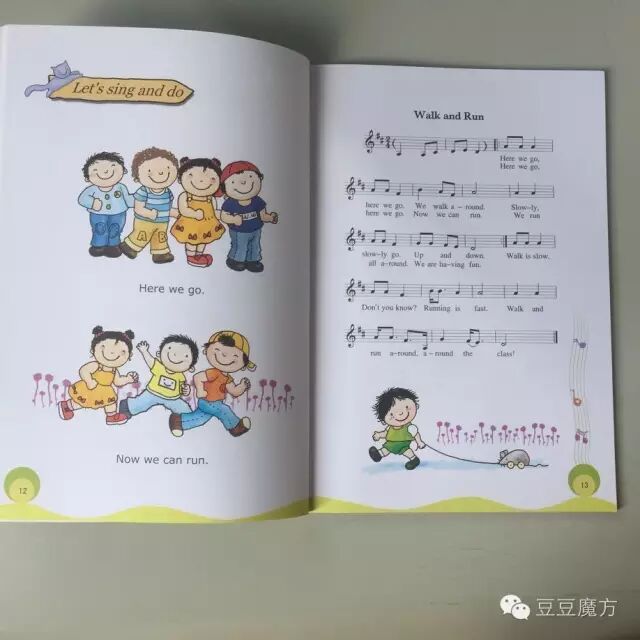 Let's sing and do
Here we go.
Now we can run.
12
Walk and Run
Here we go,
Here we go,
here we go. We walk a-round. Slow-ly,
here we go. Now we can run. We run
slow-ly go. Up and down. Walk is slow.
all a-round. We are ha-ving fun.
Don't you know? Running is fast. Walk and
run a-round, a-round the class!
13
豆豆魔方